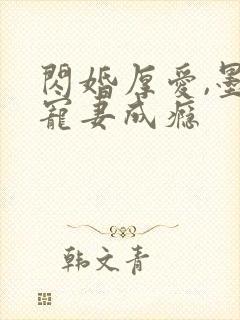 閃婚厚愛,墨
寵妻成癮
韩文青